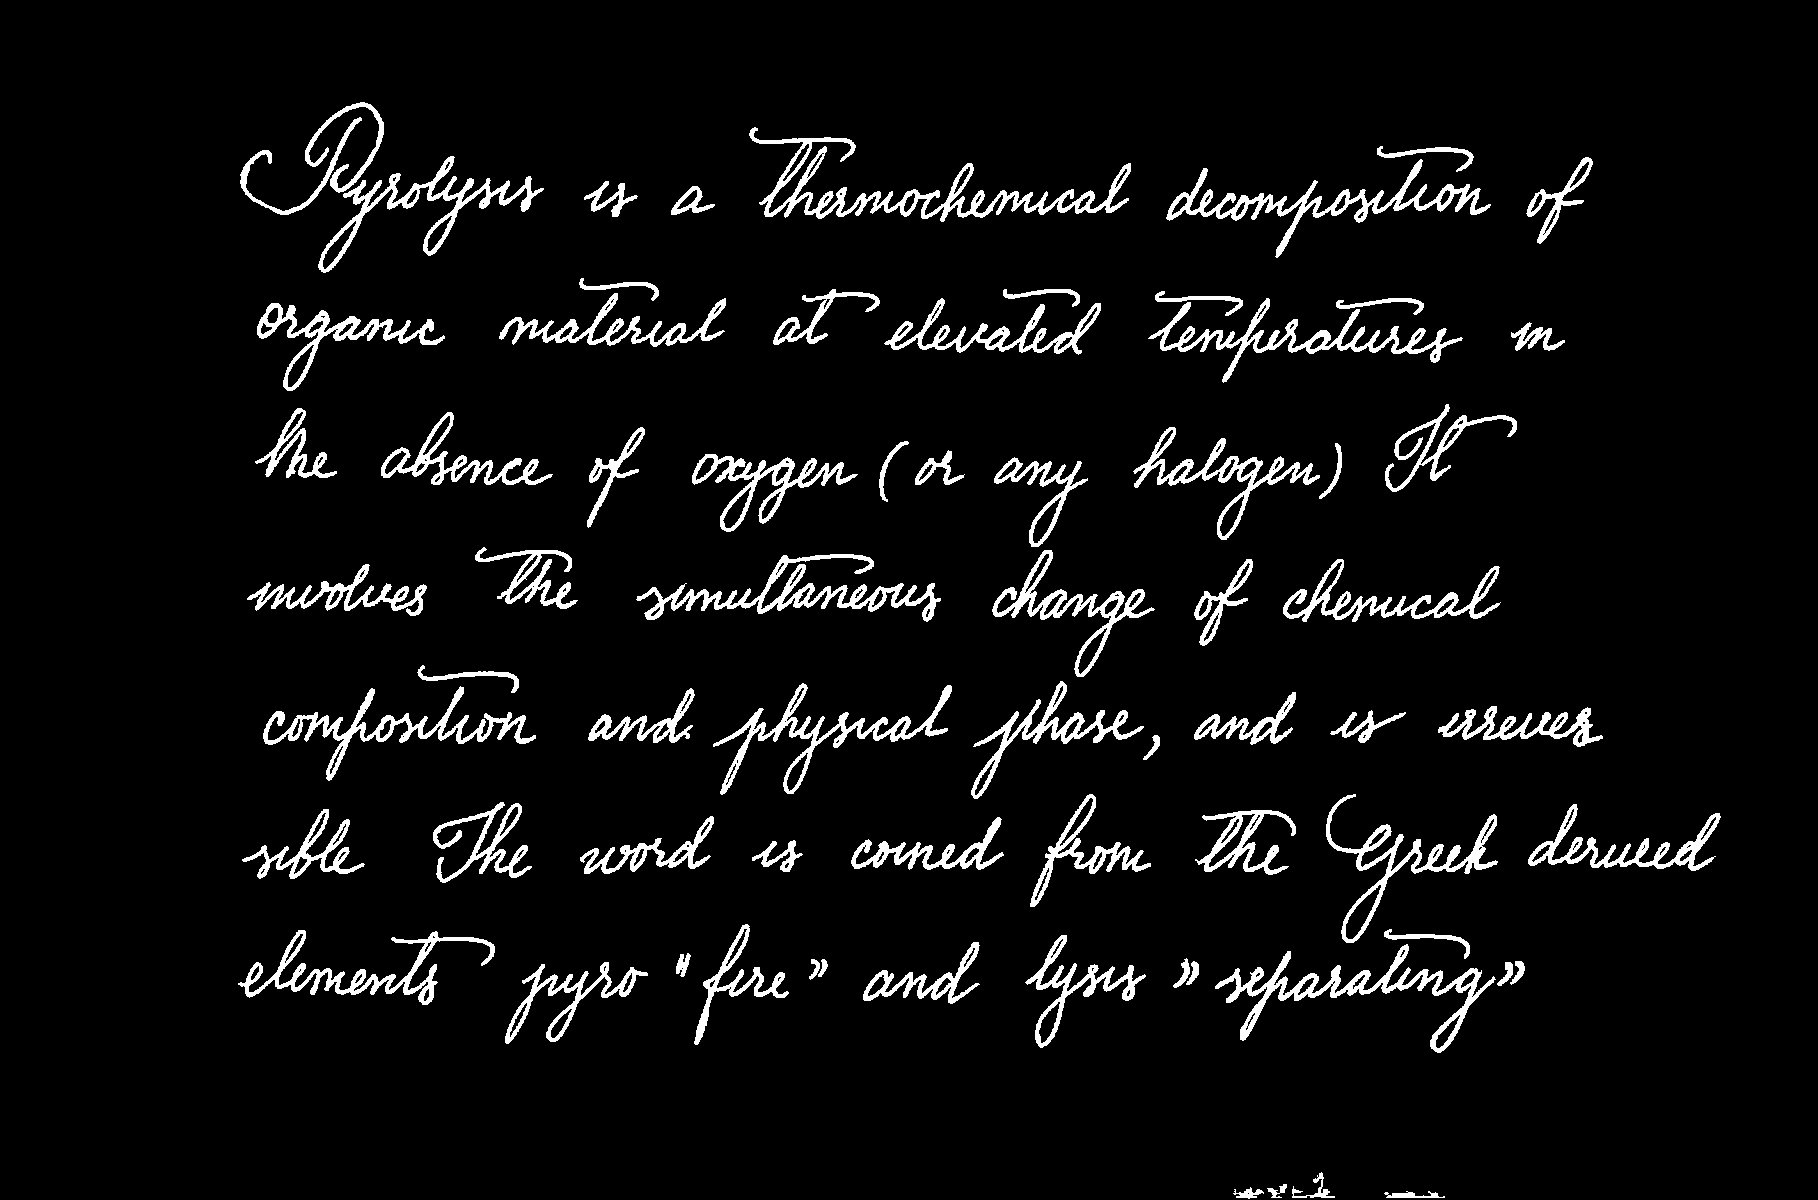 Pyrolysis is a thermochemical decomposition of
organic material at elevated temperatures in
the absence of oxygen (or any halogen) It
involves the simultaneous change of chemical
composition and physical phase, and is irrever
sible The word is coined from the Greek derived
elements pyro "fire" and lysis "separating"